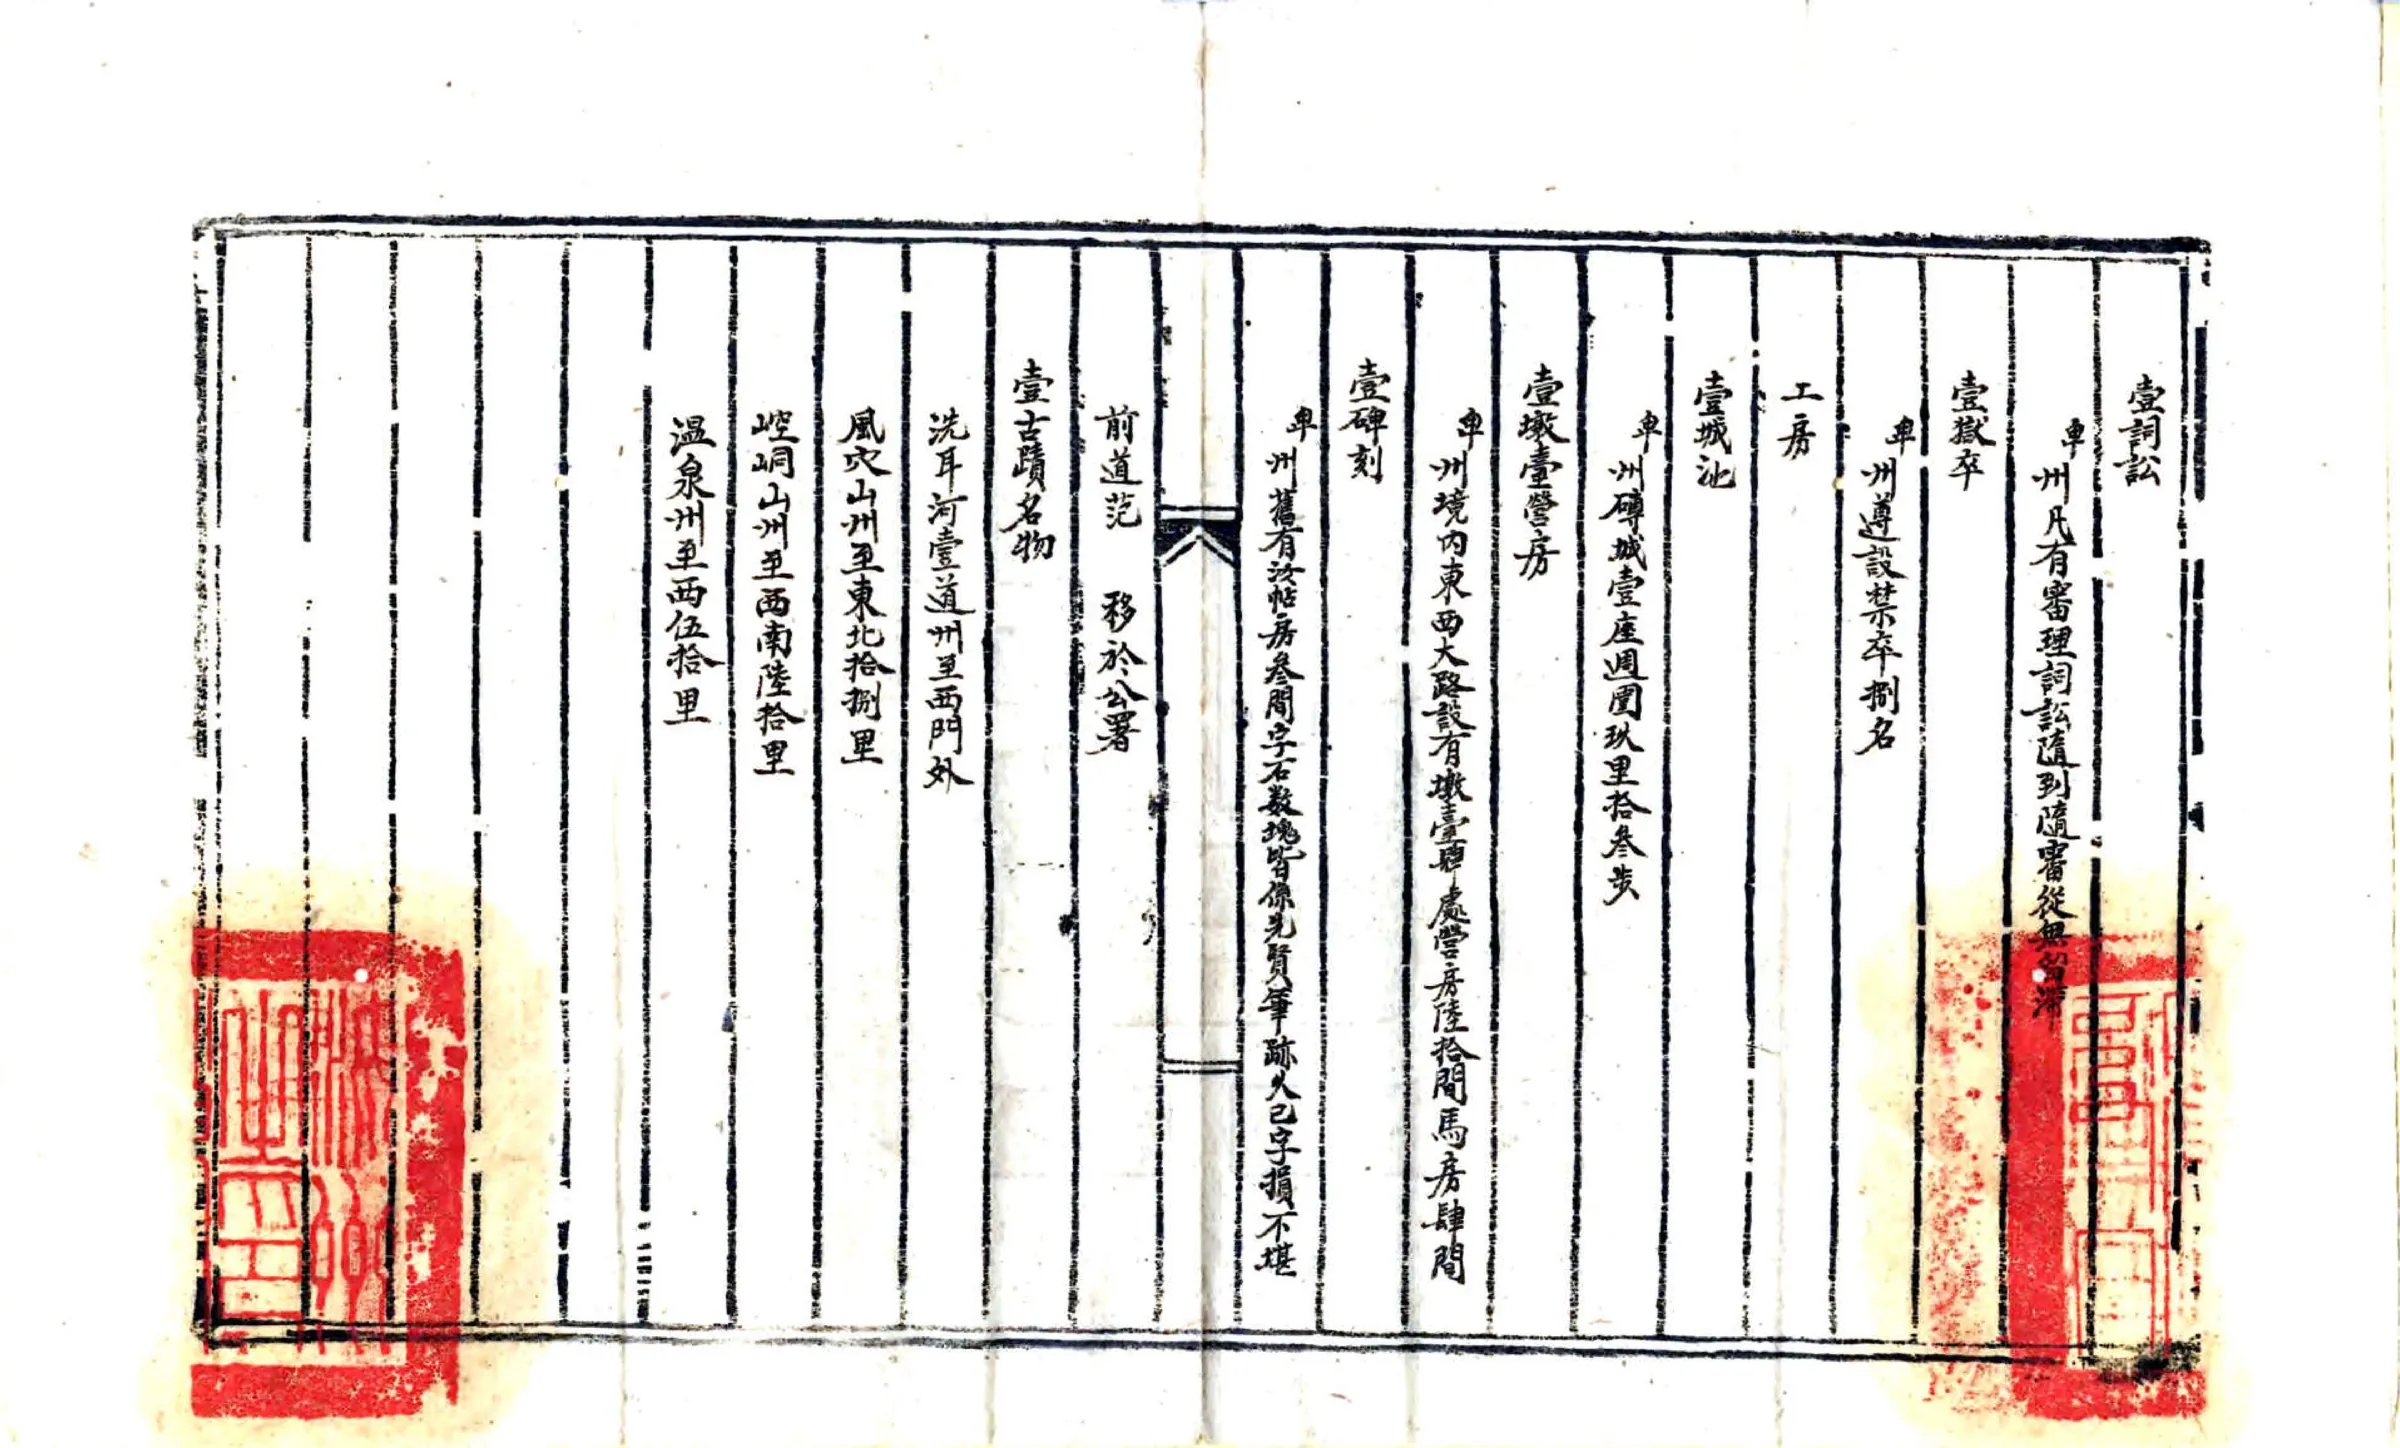 壹詞訟
卑州凡有審理詞訟隨到隨審從無留滯
壹獄卒
卑州遵設禁卒捌名
工房
壹城池
卑州磚城壹座週圍玖里拾叁步
壹墩臺營房
卑州境內東西大路設有墩臺肆處營房陸拾間馬房肆間
壹碑刻
卑州舊有汝帖房叁間字石数塊皆係先賢筆跡久已字損不堪
前道范 移於公署
壹古蹟名物
洗耳河壹道州至西門外
風穴山州至東北拾捌里
崆峒山州至西南陸拾里
温泉州至西伍拾里